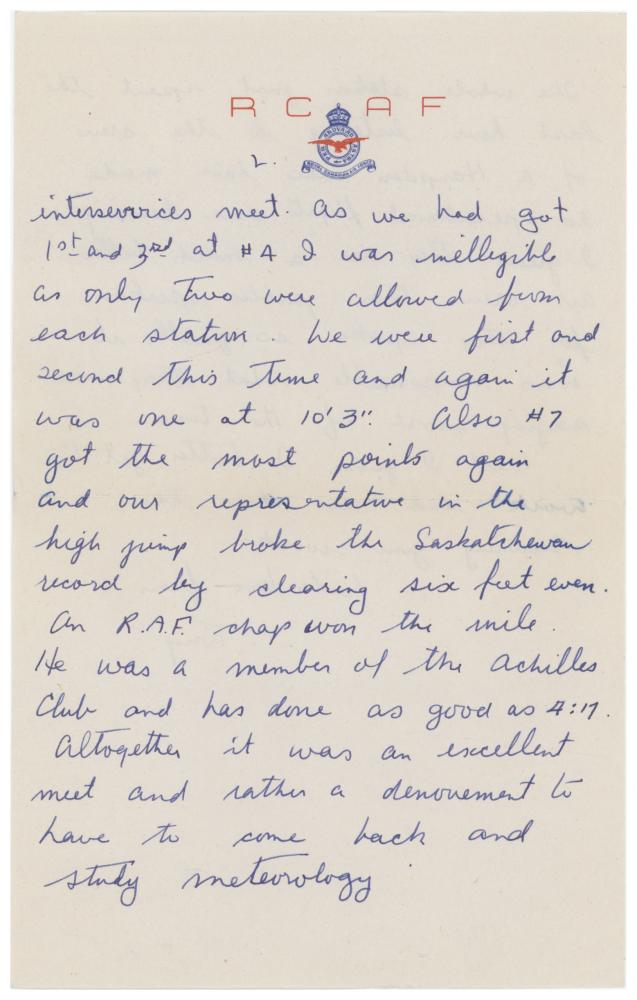 R C A F
2.
interservices meet. As we had got
1st and 3rd at #4 I was inellegible
as only two were allowed from
each station. We were first and
second this time and again it
was one at 10'3". Also #7
got the most points again
and our representative in the
high jump broke the Saskatchewan
record by clearing six feet even.
An R.A.F. chap won the mile.
He was a member of the Achilles
Club and has done as good as 4:17.
Altogether it was an excellent
meet and rather a denouement to
have to come back and
study meteorology